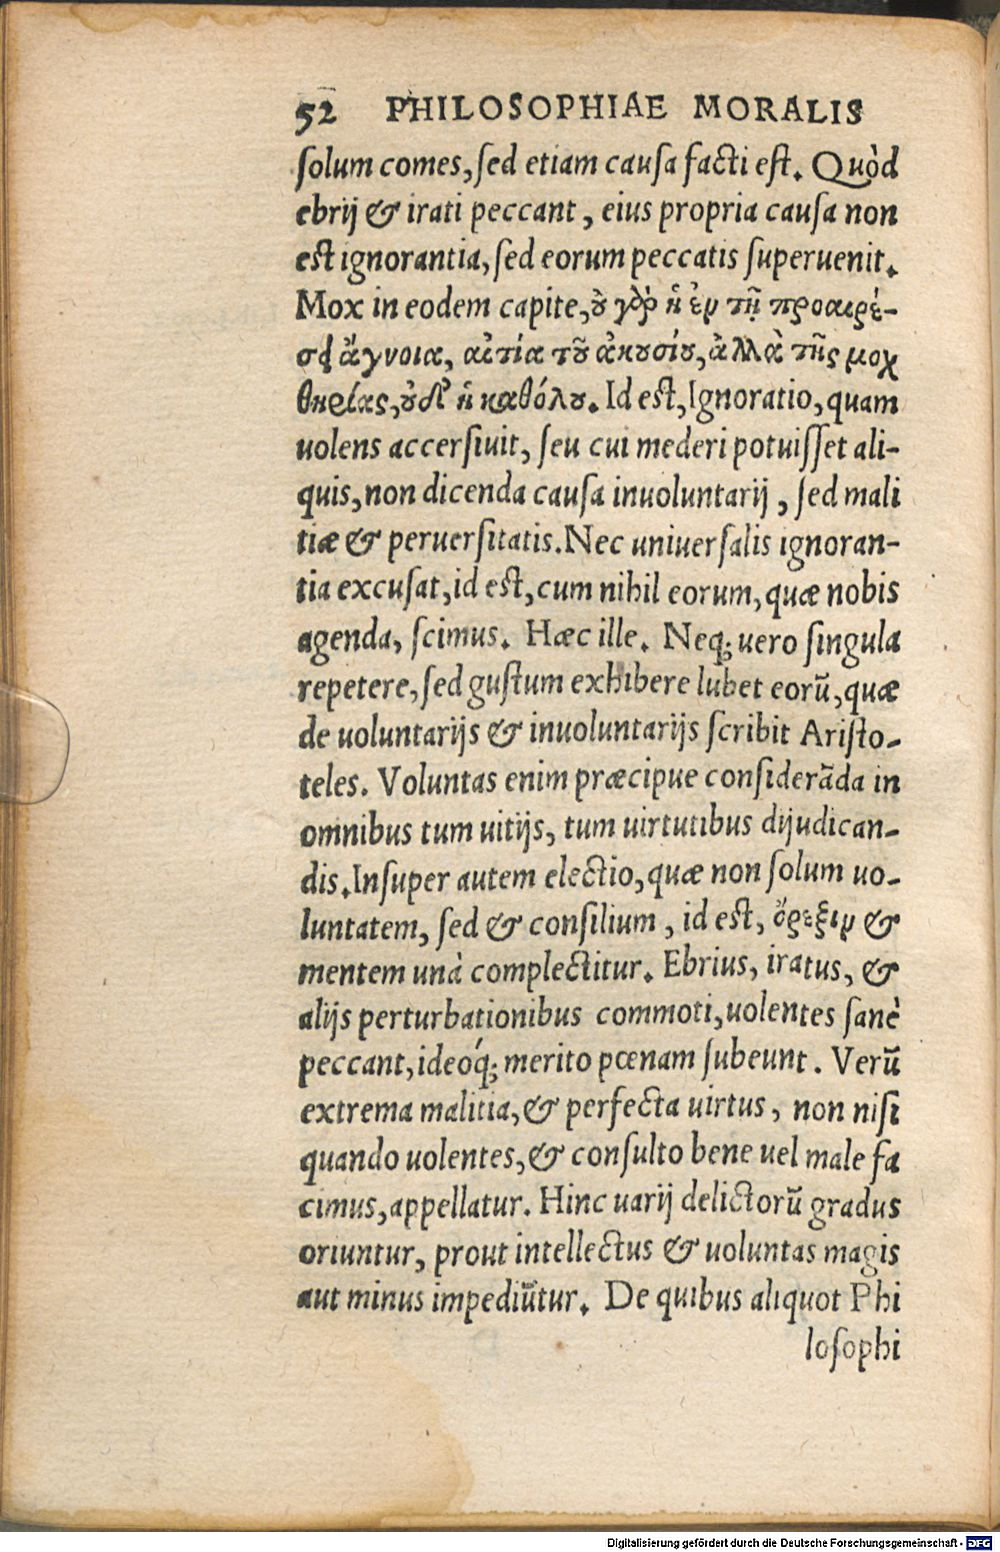 52 PHILOSOPHIAE MORALIS
solum comes, sed etiam causa facti est. Quòd
ebrij & irati peccant, eius propria causa non
est ignorantia, sed eorum peccatis superuenit.
Mox in eodem capite, ȣ̓ γὰρ ἡ ἐν τῇ προαιρέ-
σει ἄγνοια, αἰτία τȣ͂ ἀκȣσίȣ, ἀλλὰ τῆς μοχ
θηρίας, ȣ̓δ' ἡ καθόλȣ. Id est, Ignoratio, quam
uolens accersiuit, seu cui mederi potuisset ali-
quis, non dicenda causa inuoluntarij, sed mali
tiæ & peruersitatis. Nec uniuersalis ignoran-
tia excusat, id est, cum nihil eorum, quæ nobis
agenda, scimus. Hæc ille. Neq; uero singula
repetere, sed gustum exhibere lubet eorũ, quæ
de uoluntarijs & inuoluntarijs scribit Aristo-
teles. Voluntas enim præcipue considerãda in
omnibus tum uitijs, tum uirtutibus dijudican-
dis. Insuper autem electio, quæ non solum uo-
luntatem, sed & consilium, id est, ὄρεξιν &
mentem unà complectitur. Ebrius, iratus, &
alijs perturbationibus commoti, uolentes sanè
peccant, ideoq́; merito pœnam subeunt. Verũ
extrema malitia, & perfecta uirtus, non nisi
quando uolentes, & consulto bene uel male fa
cimus, appellatur. Hinc uarij delictorũ gradus
oriuntur, prout intellectus & uoluntas magis
aut minus impediũtur. De quibus aliquot Phi
losophi
Digitalisierung gefördert durch die Deutsche Forschungsgemeinschaft - DFG